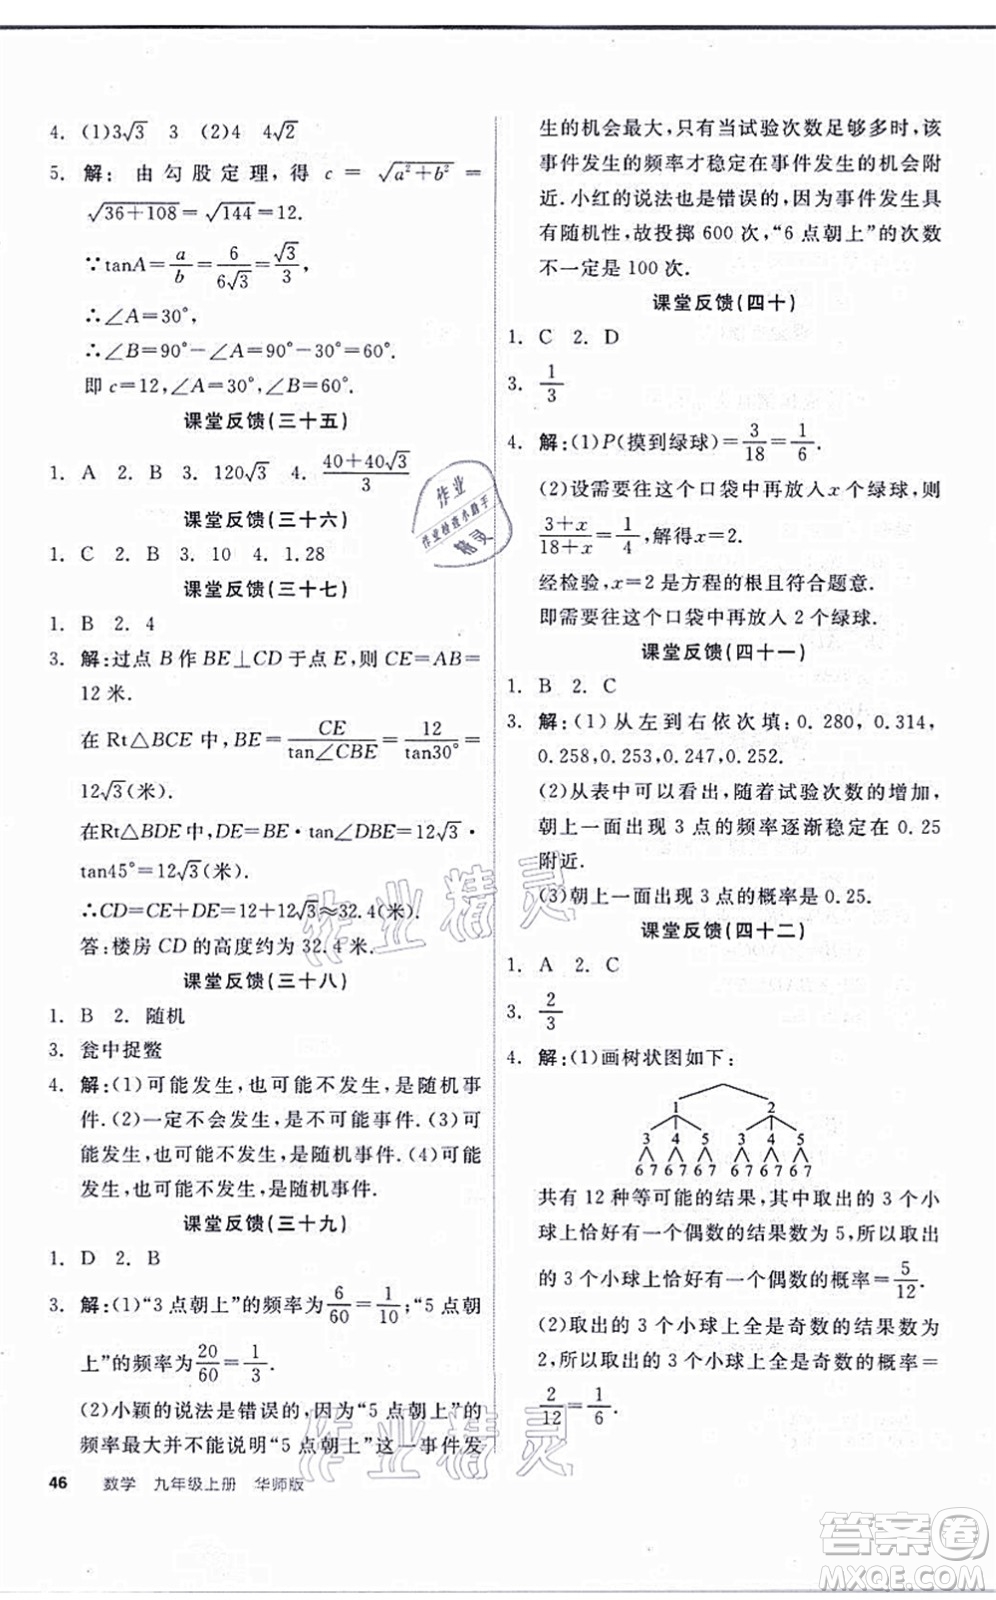 4. (1)3√3  3  (2)4  4√2
5. 解：由勾股定理，得 c = √(a²+b²) =
√(36+108) = √144 = 12.
∵tanA = a/b = 6/(6√3) = √3/3,
∴∠A=30°,
∴∠B=90°−∠A=90°−30°=60°.
即 c=12,∠A=30°,∠B=60°.
课堂反馈(三十五)
1. A  2. B  3. 120√3  4. (40+40√3)/3
课堂反馈(三十六)
1. C  2. B  3. 10  4. 1.28
课堂反馈(三十七)
1. B  2. 4
3. 解:过点 B 作 BE⊥CD 于点 E,则 CE=AB=
12 米.
在 Rt△BCE 中, BE = CE/tan∠CBE = 12/tan30° =
12√3(米).
在Rt△BDE 中,DE=BE·tan∠DBE=12√3·
tan45°=12√3(米).
∴CD=CE+DE=12+12√3≈32.4(米).
答:楼房 CD 的高度约为 32.4 米.
课堂反馈(三十八)
1. B  2. 随机
3. 瓮中捉鳖
4. 解:(1)可能发生,也可能不发生,是随机事
件.(2)一定不会发生,是不可能事件.(3)可
能发生,也可能不发生,是随机事件.(4)可能
发生,也可能不发生,是随机事件.
课堂反馈(三十九)
1. D  2. B
3. 解:(1)“3 点朝上”的频率为 6/60 = 1/10;“5 点朝
上”的频率为 20/60 = 1/3.
(2)小颖的说法是错误的,因为“5 点朝上”的
频率最大并不能说明“5 点朝上”这一事件发
生的机会最大,只有当试验次数足够多时,该
事件发生的频率才稳定在事件发生的机会附
近.小红的说法也是错误的,因为事件发生具
有随机性,故投掷 600 次,“6 点朝上”的次数
不一定是 100 次.
课堂反馈(四十)
1. C  2. D
3. 1/3
4. 解:(1)P(摸到绿球) = 3/18 = 1/6.
(2)设需要往这个口袋中再放入x 个绿球,则
(3+x)/(18+x) = 1/4,解得x=2.
经检验,x=2 是方程的根且符合题意.
即需要往这个口袋中再放入 2 个绿球.
课堂反馈(四十一)
1. B  2. C
3. 解:(1)从左到右依次填:0.280,0.314,
0.258,0.253,0.247,0.252.
(2)从表中可以看出,随着试验次数的增加,
朝上一面出现 3 点的频率逐渐稳定在 0.25
附近.
(3)朝上一面出现 3 点的概率是 0.25.
课堂反馈(四十二)
1. A  2. C
3. 2/3
4. 解:(1)画树状图如下:
1 2
3 4 5 3 4 5
6 7 6 7 6 7 6 7 6 7 6 7
共有 12 种等可能的结果,其中取出的 3 个小
球上恰好有一个偶数的结果数为 5,所以取出
的 3 个小球上恰好有一个偶数的概率 = 5/12.
(2)取出的 3 个小球上全是奇数的结果数为
2,所以取出的 3 个小球上全是奇数的概率 =
2/12 = 1/6.
46 数学 九年级上册 华师版
作业
作业检查小助手
精灵
作业精灵
作业精灵
答案卷
MXQE.COM